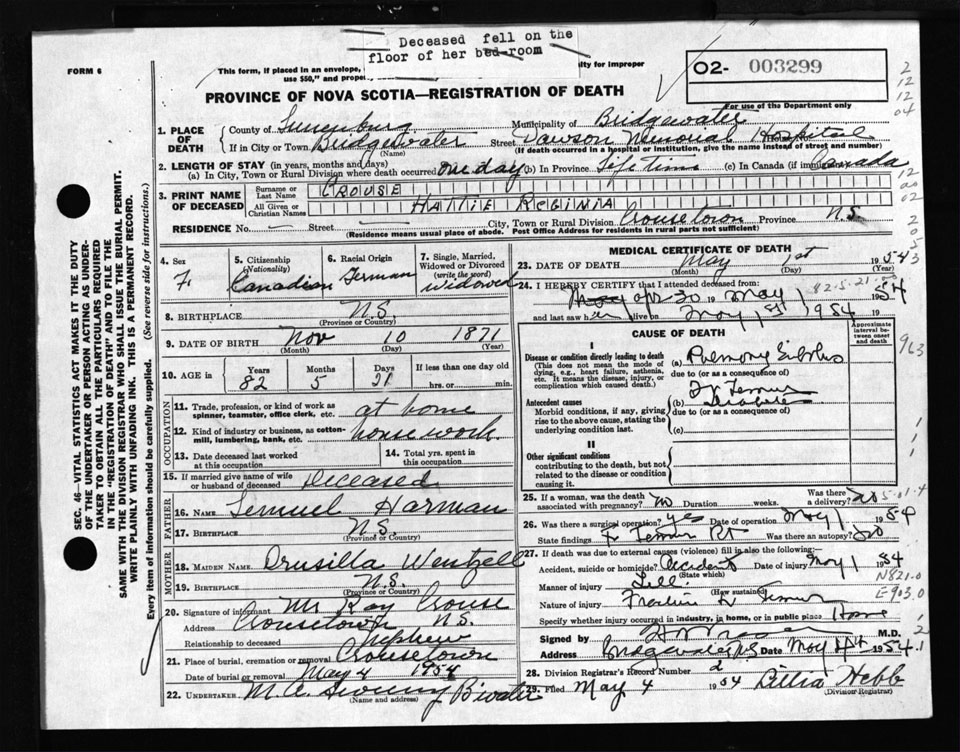 Deceased fell on the
floor of her bed-room
FORM 6
This form, if placed in an envelope,
use $50," and
for improper
02- 003299
For use of the Department only
PROVINCE OF NOVA SCOTIA—REGISTRATION OF DEATH
1. PLACE OF DEATH
County of Lunenburg
Municipality of Bridgewater
If in City or Town Bridgewater
(Name)
Street Dawson Memorial Hospital
(If death occurred in a hospital or institution, give the name instead of street and number)
2. LENGTH OF STAY (in years, months and days)
(a) In City, Town or Rural Division where death occurred one day (b) In Province Life time (c) In Canada (if immigrant) Canada
3. PRINT NAME OF DECEASED
Surname or Last Name CROUSE
All Given or Christian Names HATTIE REGINIA
RESIDENCE No. — Street — City, Town or Rural Division Crousetown Province N.S.
(Residence means usual place of abode. Post Office Address for residents in rural parts not sufficient)
4. Sex F.
5. Citizenship (Nationality) Canadian
6. Racial Origin German
7. Single, Married, Widowed or Divorced (write the word) widowed
8. BIRTHPLACE N.S.
(Province or Country)
9. DATE OF BIRTH Nov 10 1871
(Month) (Day) (Year)
10. AGE in
Years 82
Months 5
Days 21
If less than one day old
hrs. or min.
OCCUPATION
11. Trade, profession, or kind of work as spinner, teamster, office clerk, etc. at home
12. Kind of industry or business, as cotton-mill, lumbering, bank, etc. house work
13. Date deceased last worked at this occupation
14. Total yrs. spent in this occupation
15. If married give name of wife or husband of deceased Deceased
FATHER
16. Name Lemuel Harman
17. Birthplace N.S.
(Province or Country)
MOTHER
18. Maiden Name Drusilla Wentzell
19. Birthplace N.S.
(Province or Country)
20. Signature of informant Mr Ray Crouse
Address Crousetown N.S.
Relationship to deceased Nephew
21. Place of burial, cremation or removal Crousetown
Date of burial or removal May 4 1954
22. UNDERTAKER M.A. Sweeny B'water
(Name and address)
MEDICAL CERTIFICATE OF DEATH
23. DATE OF DEATH May 1st 1954
(Month) (Day) (Year)
24. I HEREBY CERTIFY that I attended deceased from:
Apr 30 19 May 1 1954
and last saw her alive on May 1st 1954
CAUSE OF DEATH
Approximate interval between onset and death
I
Disease or condition directly leading to death
(This does not mean the mode of dying, e.g., heart failure, asthenia, etc. It means the disease, injury, or complication which caused death.)
(a)
due to (or as a consequence of)
Antecedent causes
Morbid conditions, if any, giving rise to the above cause, stating the underlying condition last.
(b) Fr Femur
Diabetes
due to (or as a consequence of)
(c)
II
Other significant conditions
contributing to the death, but not related to the disease or condition causing it.
25. If a woman, was the death associated with pregnancy? No Duration weeks. Was there a delivery? no
26. Was there a surgical operation? yes Date of operation May 1 1954
State findings Fr Femur Rt Was there an autopsy? no
27. If death was due to external causes (violence) fill in also the following:—
Accident, suicide or homicide? Accident Date of injury May 1 1954
(State which)
Manner of injury Fell
(How sustained)
Nature of injury Fracture R Femur
Specify whether injury occurred in industry, in home, or in public place Home
Signed by M.D.
Address Bridgewater N.S. Date May 1954
28. Division Registrar's Record Number 2
29. Filed May 4 1954 Hebb
(Division Registrar)
N821.0
E903.0
963
SEC. 46—VITAL STATISTICS ACT MAKES IT THE DUTY
OF THE UNDERTAKER OR PERSON ACTING AS UNDER-
TAKER TO OBTAIN ALL THE PARTICULARS REQUIRED
IN THE "REGISTRATION OF DEATH" AND TO FILE THE
SAME WITH THE DIVISION REGISTRAR WHO SHALL ISSUE THE BURIAL PERMIT.
WRITE PLAINLY WITH UNFADING INK. THIS IS A PERMANENT RECORD.
Every item of information should be carefully supplied. (See reverse side for instructions.)